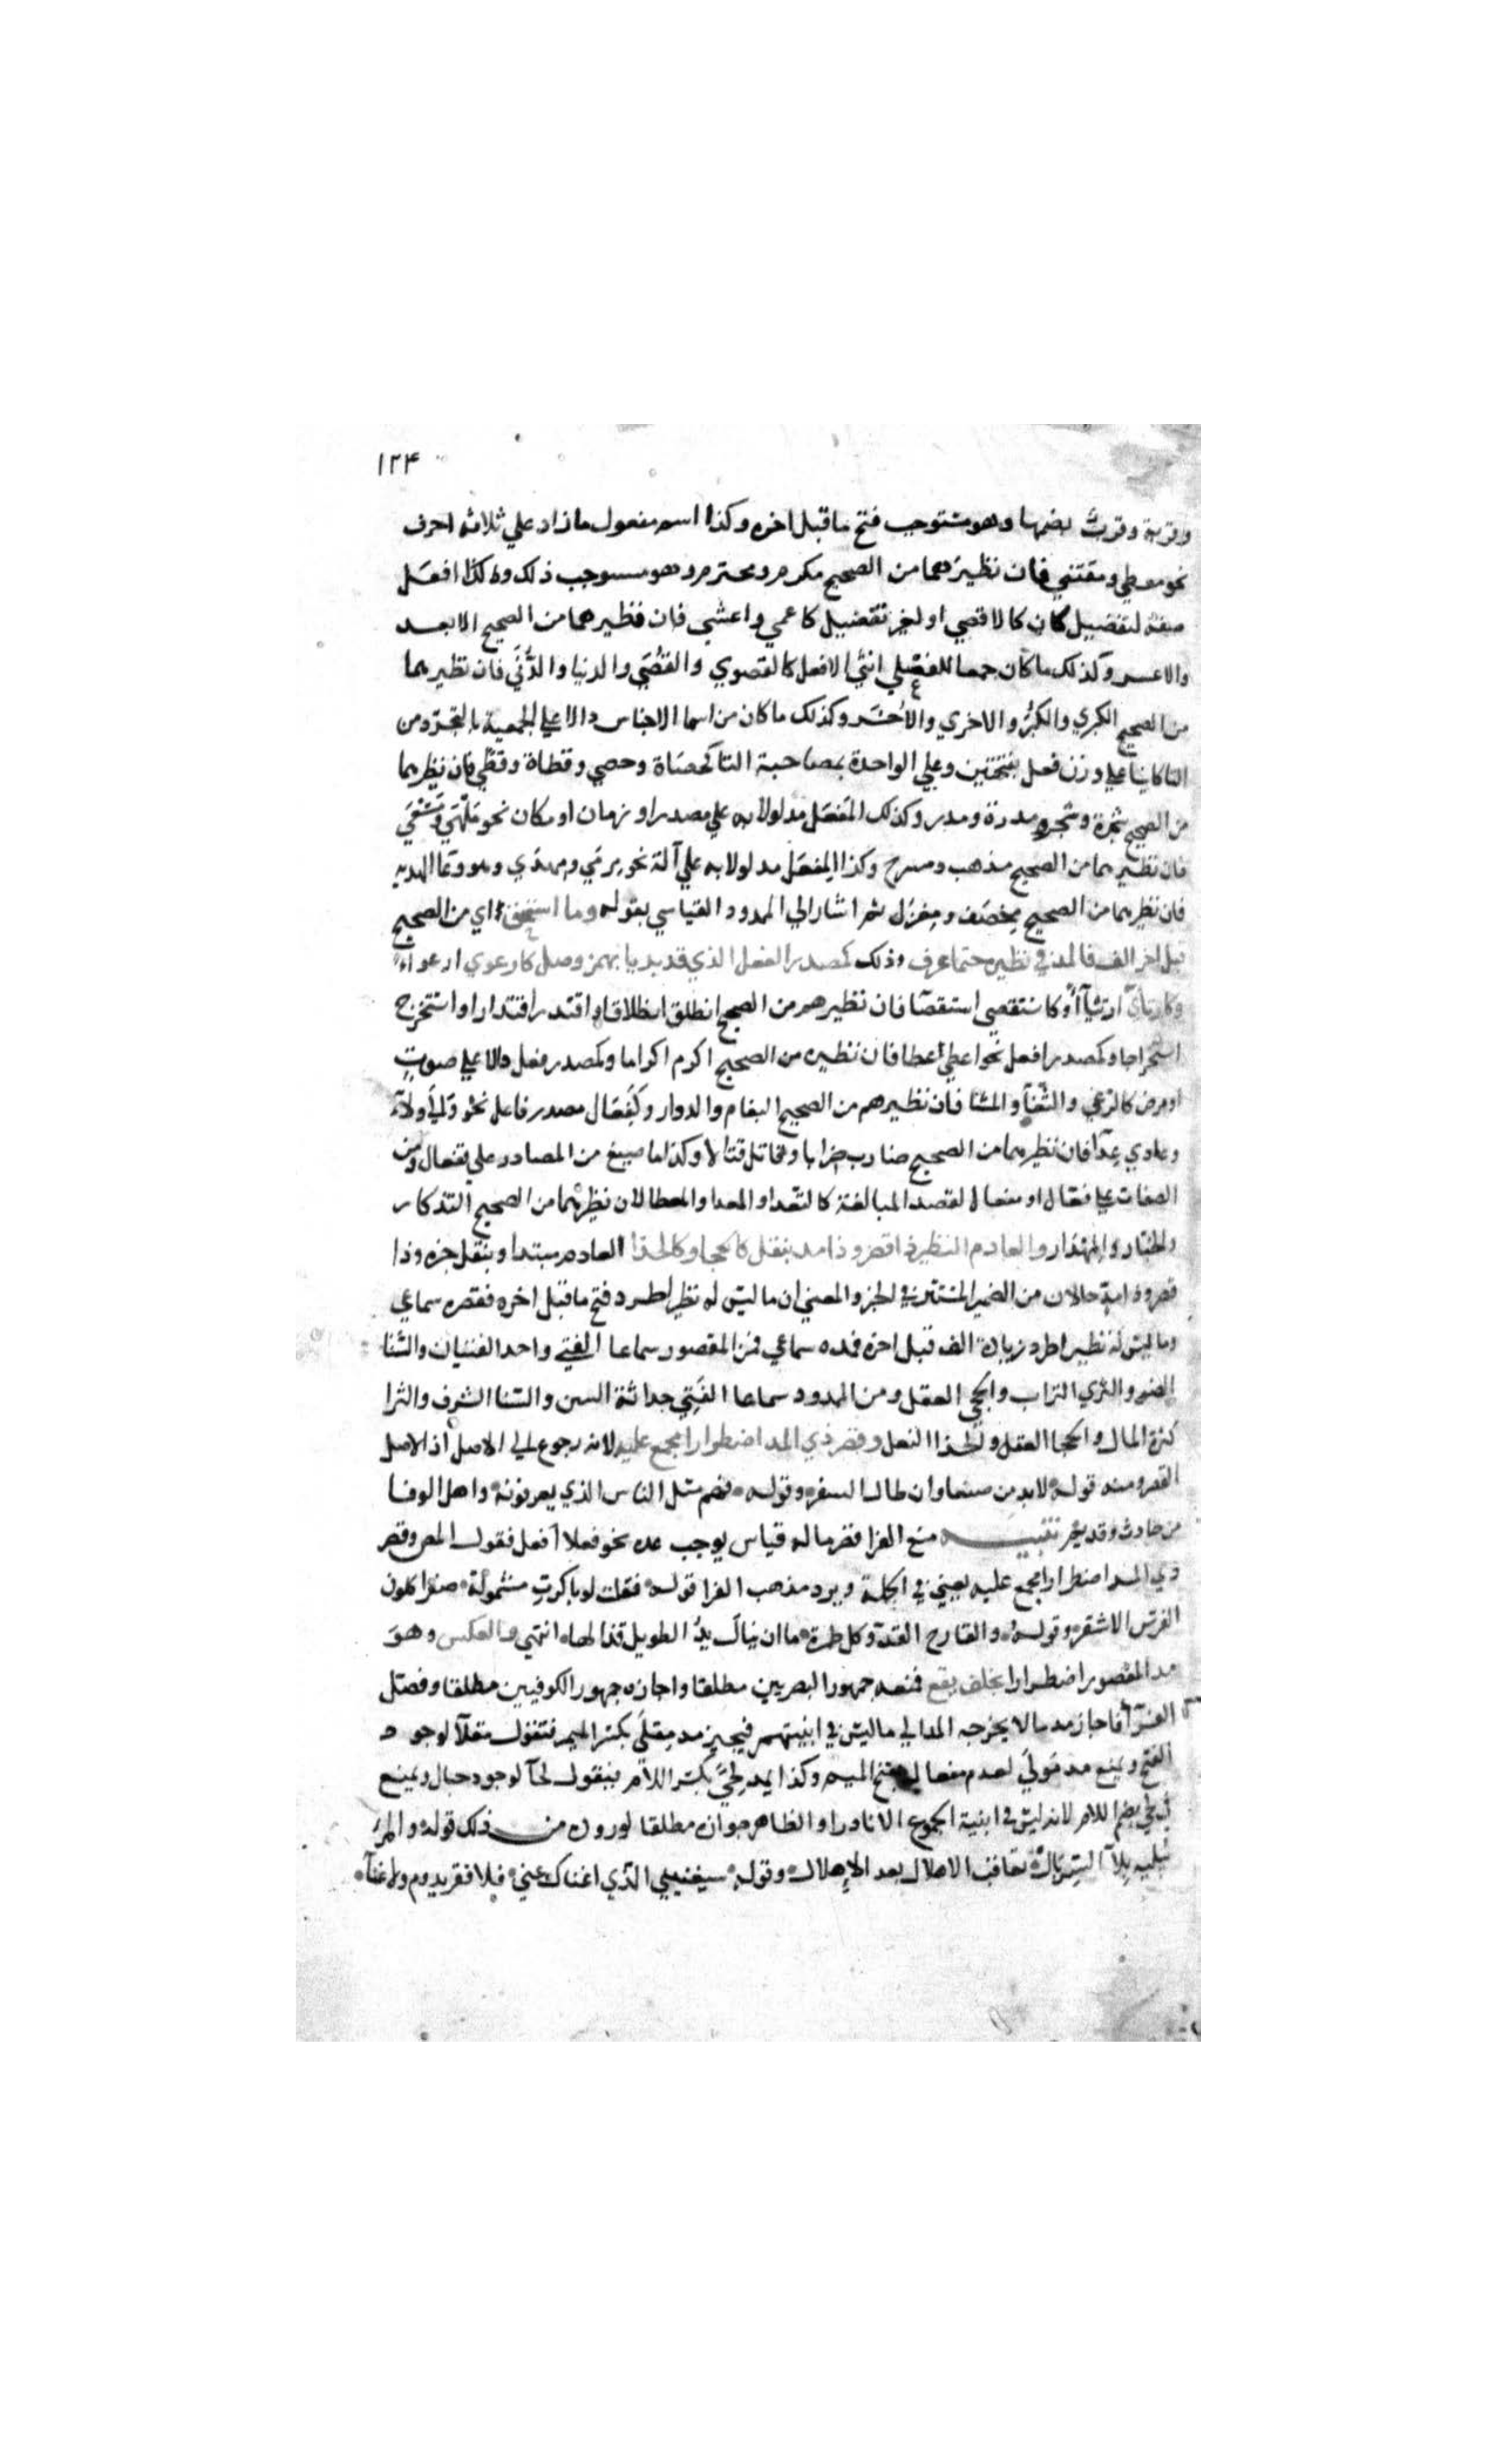 ١٢۴
وقربة وقرب بضمها وهو مستوجب فتح ما قبل اخره وكذا اسم مفعول ما زاد علي ثلاثه احرف
نحو معطي ومقتني فان نظيرهما من الصحيح مكرم ومحترم وهو مستوجب ذلك وكذا افعل
صفة لتفضيل كان كالاقصي او لغير تفضيل كاعمي واعشي فان نظيرهما من الصحيح الابعد
والاعسر وكذلك ما كان جمعا للفعلي انثي الافعل كالقصوي والقُصَي والدنيا والدُّنَي فان نظيرهما
من الصحيح الكبري والكبَر والاخري والاُخَر وكذلك ما كان من اسما الاجناس دالا علي الجمعية بالتجرّد من
التا كاينا علي وزن فعل بفتحتين وعلي الواحدة بمصاحبة التا كحصاة وحصي وقطاة وقطي فان نظيرهما
من الصحيح شجرة وشجر ومدرة ومدر وكذلك المَفعَل مدلولا به علي مصدر او زمان او مكان نحو مَلهَي ومَسْعَي
فان نظيرهما من الصحيح مذهب ومسرح وكذا المِفعَل مدلولا به علي آلة نحو مِرمَي ومِهدَي وهو وعا الهديه
فان نظيرهما من الصحيح مِخصَف ومِغزَل ثم اشار الي الممدود القياسي بقوله وما استحق اي من الصحيح
قبل اخر الف فالمد في نظيره حتما عرف وذلك كمصدر الفعل الذي قد بديا بهمز وصل كارعوي ارعواء
وكارتأي ارتئآاً وكاستقصي استقصآ فان نظيرهم من الصحيح انطلق انطلاقا واقتدر اقتدارا واستخرج
استخراجا وكمصدر افعل نحو اعطي اعطا فان نظيره من الصحيح اكرم اكراما وكمصدر فعل دالا علي صوتٍ
او مرض كالرغي والثُّغآ والمشا فان نظيرهم من الصحيح البغام والدوار وكَفِعَال مصدر فاعل نحو والي ولآءً
وعادي عِدآ فان نظيرهما من الصحيح ضارب ضرابا وقاتل قتالا وكذا ما صيغ من المصادر علي تفعال ومن
الصفات علي فعّال او مفعال لقصد المبالغة كالتعدا والعدا والمعطا لان نظيرهما من الصحيح التذكار
والخبّار والمهذار والعادم النظير ذا قصر وذا مد بنقل كالحجا وكالحذا العادم مبتدا وبنقل خبره وذا
قصر وذا مدّ حالان من الضمير المستتر في الخبر والمعني ان ما ليس له نظير اطرد فتح ما قبل اخره فقصره سماعي
وما ليس له نظير اطرد زيادة الف قبل اخره فمده سماعي فمن المقصور سماعا الفتي واحد الفتيان والسنا
الضو والثري التراب والحجي العقل ومن الممدود سماعا الفَتِي حداثة السن والسنا الشرف والثرا
كثرة المال والحجا العقل والحذا النعل وقصر ذي المد اضطرارا مجمع عليه لانه رجوع الي الاصل اذ الاصل
القصر ومنه قوله لا بد من صنعا وان طال السفر وقوله فهم مثل الناس الذي يعرفونه واهل الوفا
من حادث وقديم تنبيه منع الفرا قصر ما له قياس يوجب مده نحو فعلا افعل فقول المص وقصر
ذي المد اضطرارا مجمع عليه يعني في الجملة ويرد مذهب الفرا قوله فقلت لو باكرتِ مشمولة صفرا كلون
الفرس الاشقر وقوله والقارح العدّا وكل طمرة ما ان ينال يدُ الطويل قذالها انتهي والعكس وهو
مد المقصور اضطرارا بخلف يقع فمنعه جمهور البصريين مطلقا واجازه جمهور الكوفيين مطلقا وفصّل
الفرّآ فاجاز مد ما لا يخرجه المد الي ما ليس في ابنيتهم فيجيز مد مِقلَي بكسر الميم فتقول مقلآ لوجود
الفتح ويمنع مد مَوليَ لعدم مفعال بفتح الميم وكذا يمد لِحَيً بكسر اللام فيقول لحآ لوجود جبال ويمنع
في لحي بضم اللام لانه ليس في ابنية الجموع الا نادرا والظاهر جوازه مطلقا لوروده من ذلك قوله والمرءُ
يبليه بِلآ السربال تعاقب الاهلال بعد الاهلال وقوله سيغنيني الذي اغناك عني فلا فقر يدوم ولا غنآ